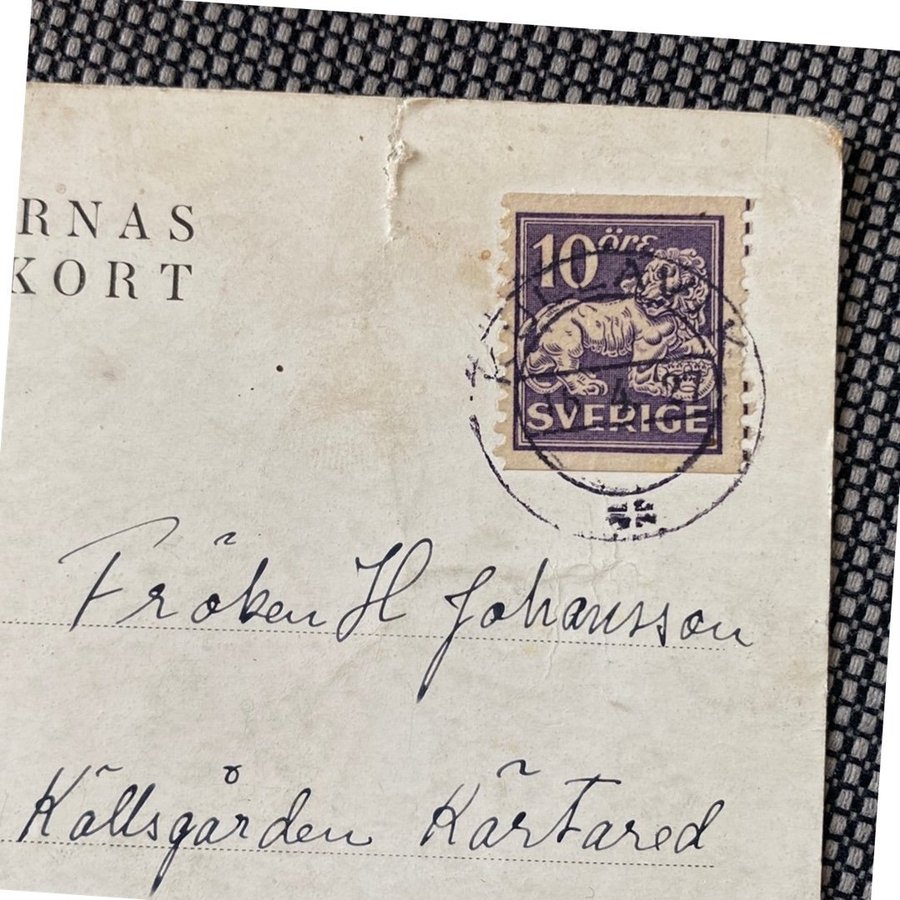 RNAS
KORT
10 öre
SVERIGE
Fröken H Johansson
Källsgården Kärtared